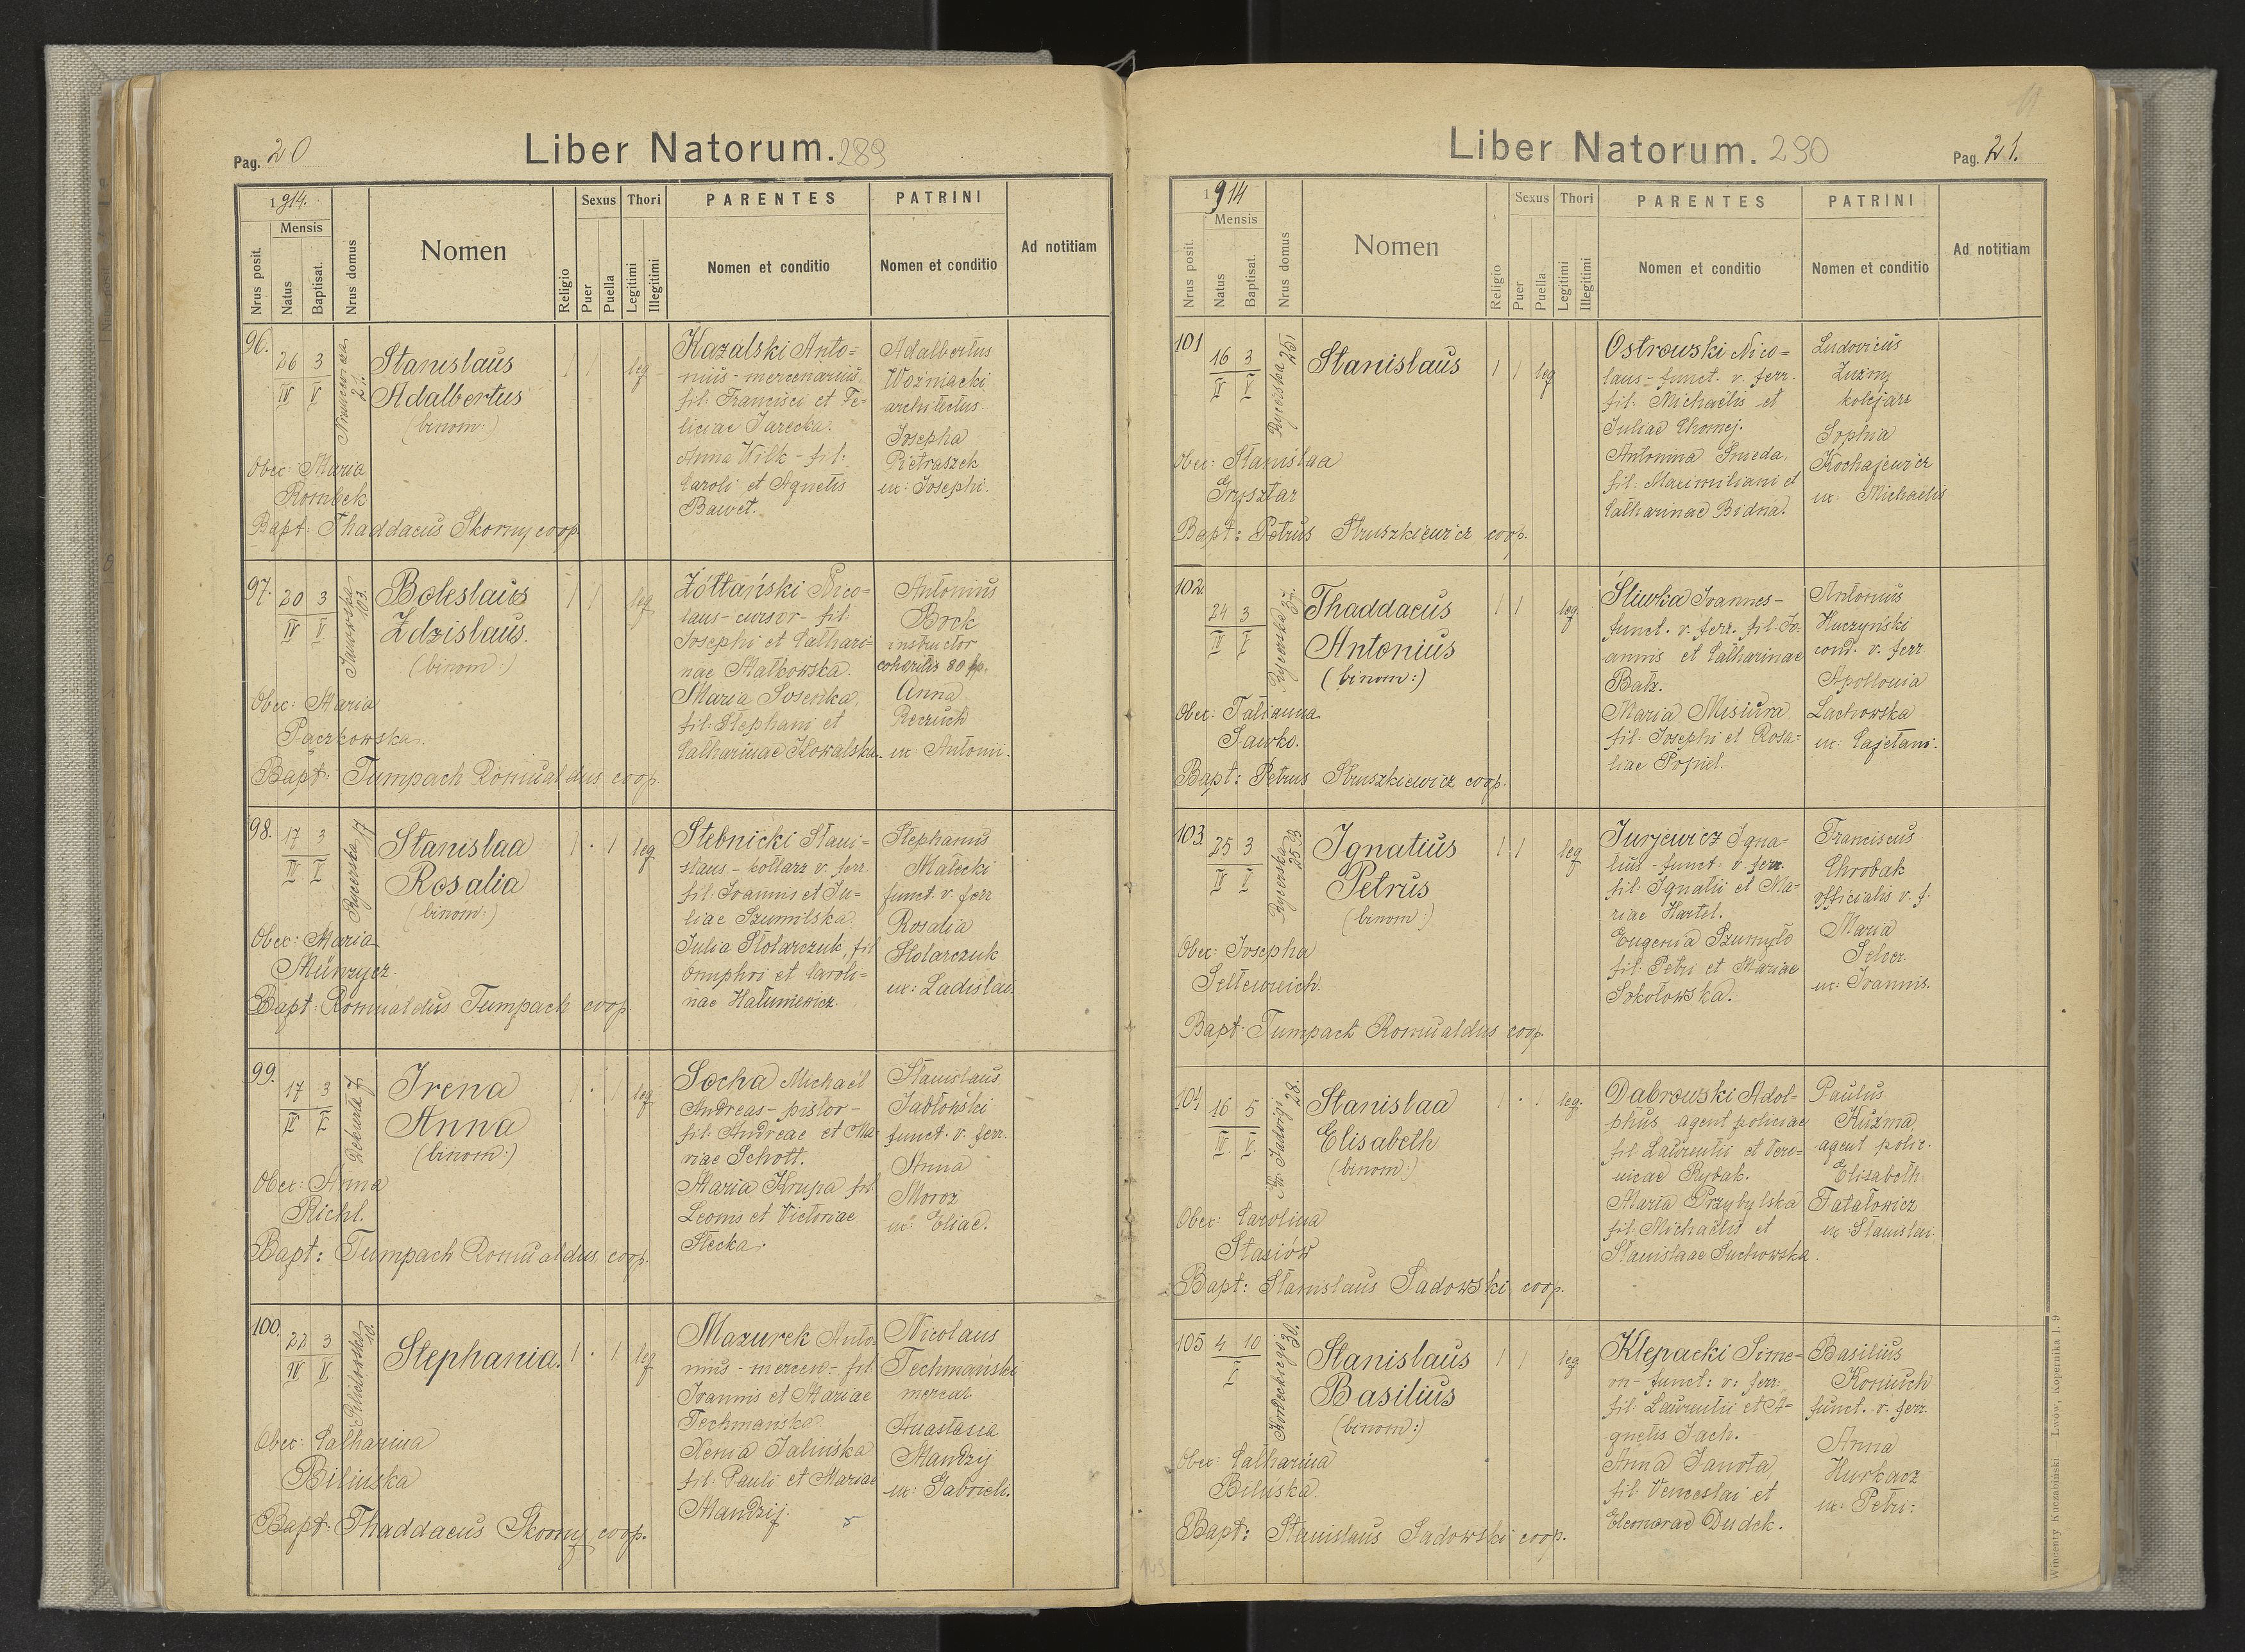 Pag. 20
Liber Natorum. 289
1914.
Mensis
Nrus posit.
Natus
Baptisat.
Nrus domus
Nomen
Religio
Sexus
Puer
Puella
Thori
Legitimi
Illegitimi
PARENTES
Nomen et conditio
PATRINI
Nomen et conditio
Ad notitiam
96.
26 3
IV V
Stanislaus
Adalbertus
(binom:)
1 1 leg
Obec: Maria
Rombek
Bapt: Thaddaeus Skorny coop.
Kazalski Anto=
nius - mercenarius
fil: Francisci et Fe-
liciae Jarecka.
Anna Wilk - fil:
Caroli et Agnetis
Bawet.
Adalbertus
Woźniacki
architectus.
Josepha
Pietraszek
ux: Josephi.
97.
20 3
IV V
Janowska
103.
Boleslaus
Zdzislaus.
(binom:)
1 1 leg
Obec: Maria
Paczkowska.
Bapt: Tumpach Romualdus coop.
Żółtański Nico=
laus - cursor - fil:
Josephi et Cathari=
nae Małkowska.
Maria Sosenka,
fil: Stephani et
Catharinae Kowalska.
Antonius
Brck
instructor
cohortis 80 p.
Anna
Reczuch
ux: Antonii.
98.
17 3
IV V
Rycerska 17
Stanislaa
Rosalia
(binom:)
1 . 1 leg
Obec: Maria
Münzycz.
Bapt: Romualdus Tumpach coop.
Stebnicki Stani=
slaus - kotlarz v. ferr
fil: Joannis et Ju=
liae Szumilska
Julia Stolarczuk, fil
Onuphri et Caroli=
nae Hałuniewicz.
Stephanus
Małecki
funct. v. ferr
Rosalia
Stolarczuk
ux: Ladislai.
99.
17 3
IV V
Irena
Anna
(binom:)
1 . 1 leg
Obec: Anna
Richl.
Bapt: Tumpach Romualdus, coop.
Socha Michaël
Andreas - pistor -
fil: Andreae et Ma=
riae Schott.
Maria Krupa fil
Leonis et Victoriae
Stecka.
Stanislaus
Jabłoński
funct. v. ferr.
Anna
Moroz
ux: Eliae.
100.
22 3
IV V
10.
Stephania.
1 . 1 leg
Obec: Catharina
Bilinska
Bapt: Thaddaeus Skorny coop.
Mazurek Anto=
nius - mercen - fil:
Joannis et Mariae
Techmańska
Xenia Jalińska
fil: Pauli et Mariae
Mandzij.
Nicolaus
Techmański
mercat.
Anastasia
Mandzij
ux: Gabrieli.
Liber Natorum. 290
Pag. 21.
1914
Mensis
Nrus posit.
Natus
Baptisat.
Nrus domus
Nomen
Religio
Sexus
Puer
Puella
Thori
Legitimi
Illegitimi
PARENTES
Nomen et conditio
PATRINI
Nomen et conditio
Ad notitiam
101
16 3
IV V
Rycerska 251
Stanislaus
1 1 leg
Obec: Stanislaa
Grysztar
Bapt: Petrus Struszkiewicz coop.
Ostrowski Nico=
laus - funct. v. ferr.
fil: Michaëlis et
Juliae Chomej.
Antonina Śnieda,
fil: Maximiliani et
Catharinae Bidna.
Ludovicus
Luzny
kolejarz
Sophia
Kochajewicz
ux: Michaëlis
102.
24 3
IV V
Rycerska 37.
Thaddaeus
Antonius
(binom:)
1 1 leg
Obec: Tatianna
Sawko.
Bapt: Petrus Struszkiewicz coop.
Śliwka Joannes -
funct. v. ferr. fil: Jo-
annis et Catharinae
Bałz.
Maria Misiura
fil: Josephi et Rosa=
liae Popiel.
Antonius
Huczyński
cond. v. ferr.
Apollonia
Lachowska
ux: Cajetani.
103.
25 3
IV V
Rycerska
25 B
Ignatius
Petrus
(binom:)
1 1 leg
Obec: Josepha
Seltenreich.
Bapt: Tumpach Romualdus coop.
Jurjewicz Igna=
tius - funct. v. ferr.
fil: Ignatii et Ma=
riae Hartel.
Eugenia Szumyło
fil: Petri et Mariae
Sokołowska.
Franciscus
Chrobak
officialis v. f.
Maria
Selver.
ux: Joannis.
104
16 5
IV. V.
Kr. Jadwigi
28.
Stanislaa
Elisabeth
(binom:)
1 . 1 leg.
Obec: Carolina
Stasiów
Bapt: Stanislaus Sadowski coop.
Dabrowski Adol=
phus agent policiae
fil Laurentii et Vero=
nicae Rybak.
Maria Przybylska
fil: Michaëlis et
Stanislaae Suchowska.
Paulus
Kuźma,
agent polic.
Elisabeth
Fatałowicz
ux Stanislai.
105
4 10
V
Kordeckiego 30.
Stanislaus
Basilius
(binom:)
1 1 leg
Obec: Catharina
Bilińska.
Bapt: Stanislaus Sadowski coop.
Klepacki Sime=
on - funct: v: ferr:
fil: Laurentii et A=
gnetis Jach.
Anna Janota
fil: Venceslai et
Eleonorae Dudek.
Basilius
Koniuch
funct. v. ferr.
Anna
Hurkacz
ux: Petri:
Wincenty Kuczabiński — Lwów, Kopernika l. 9